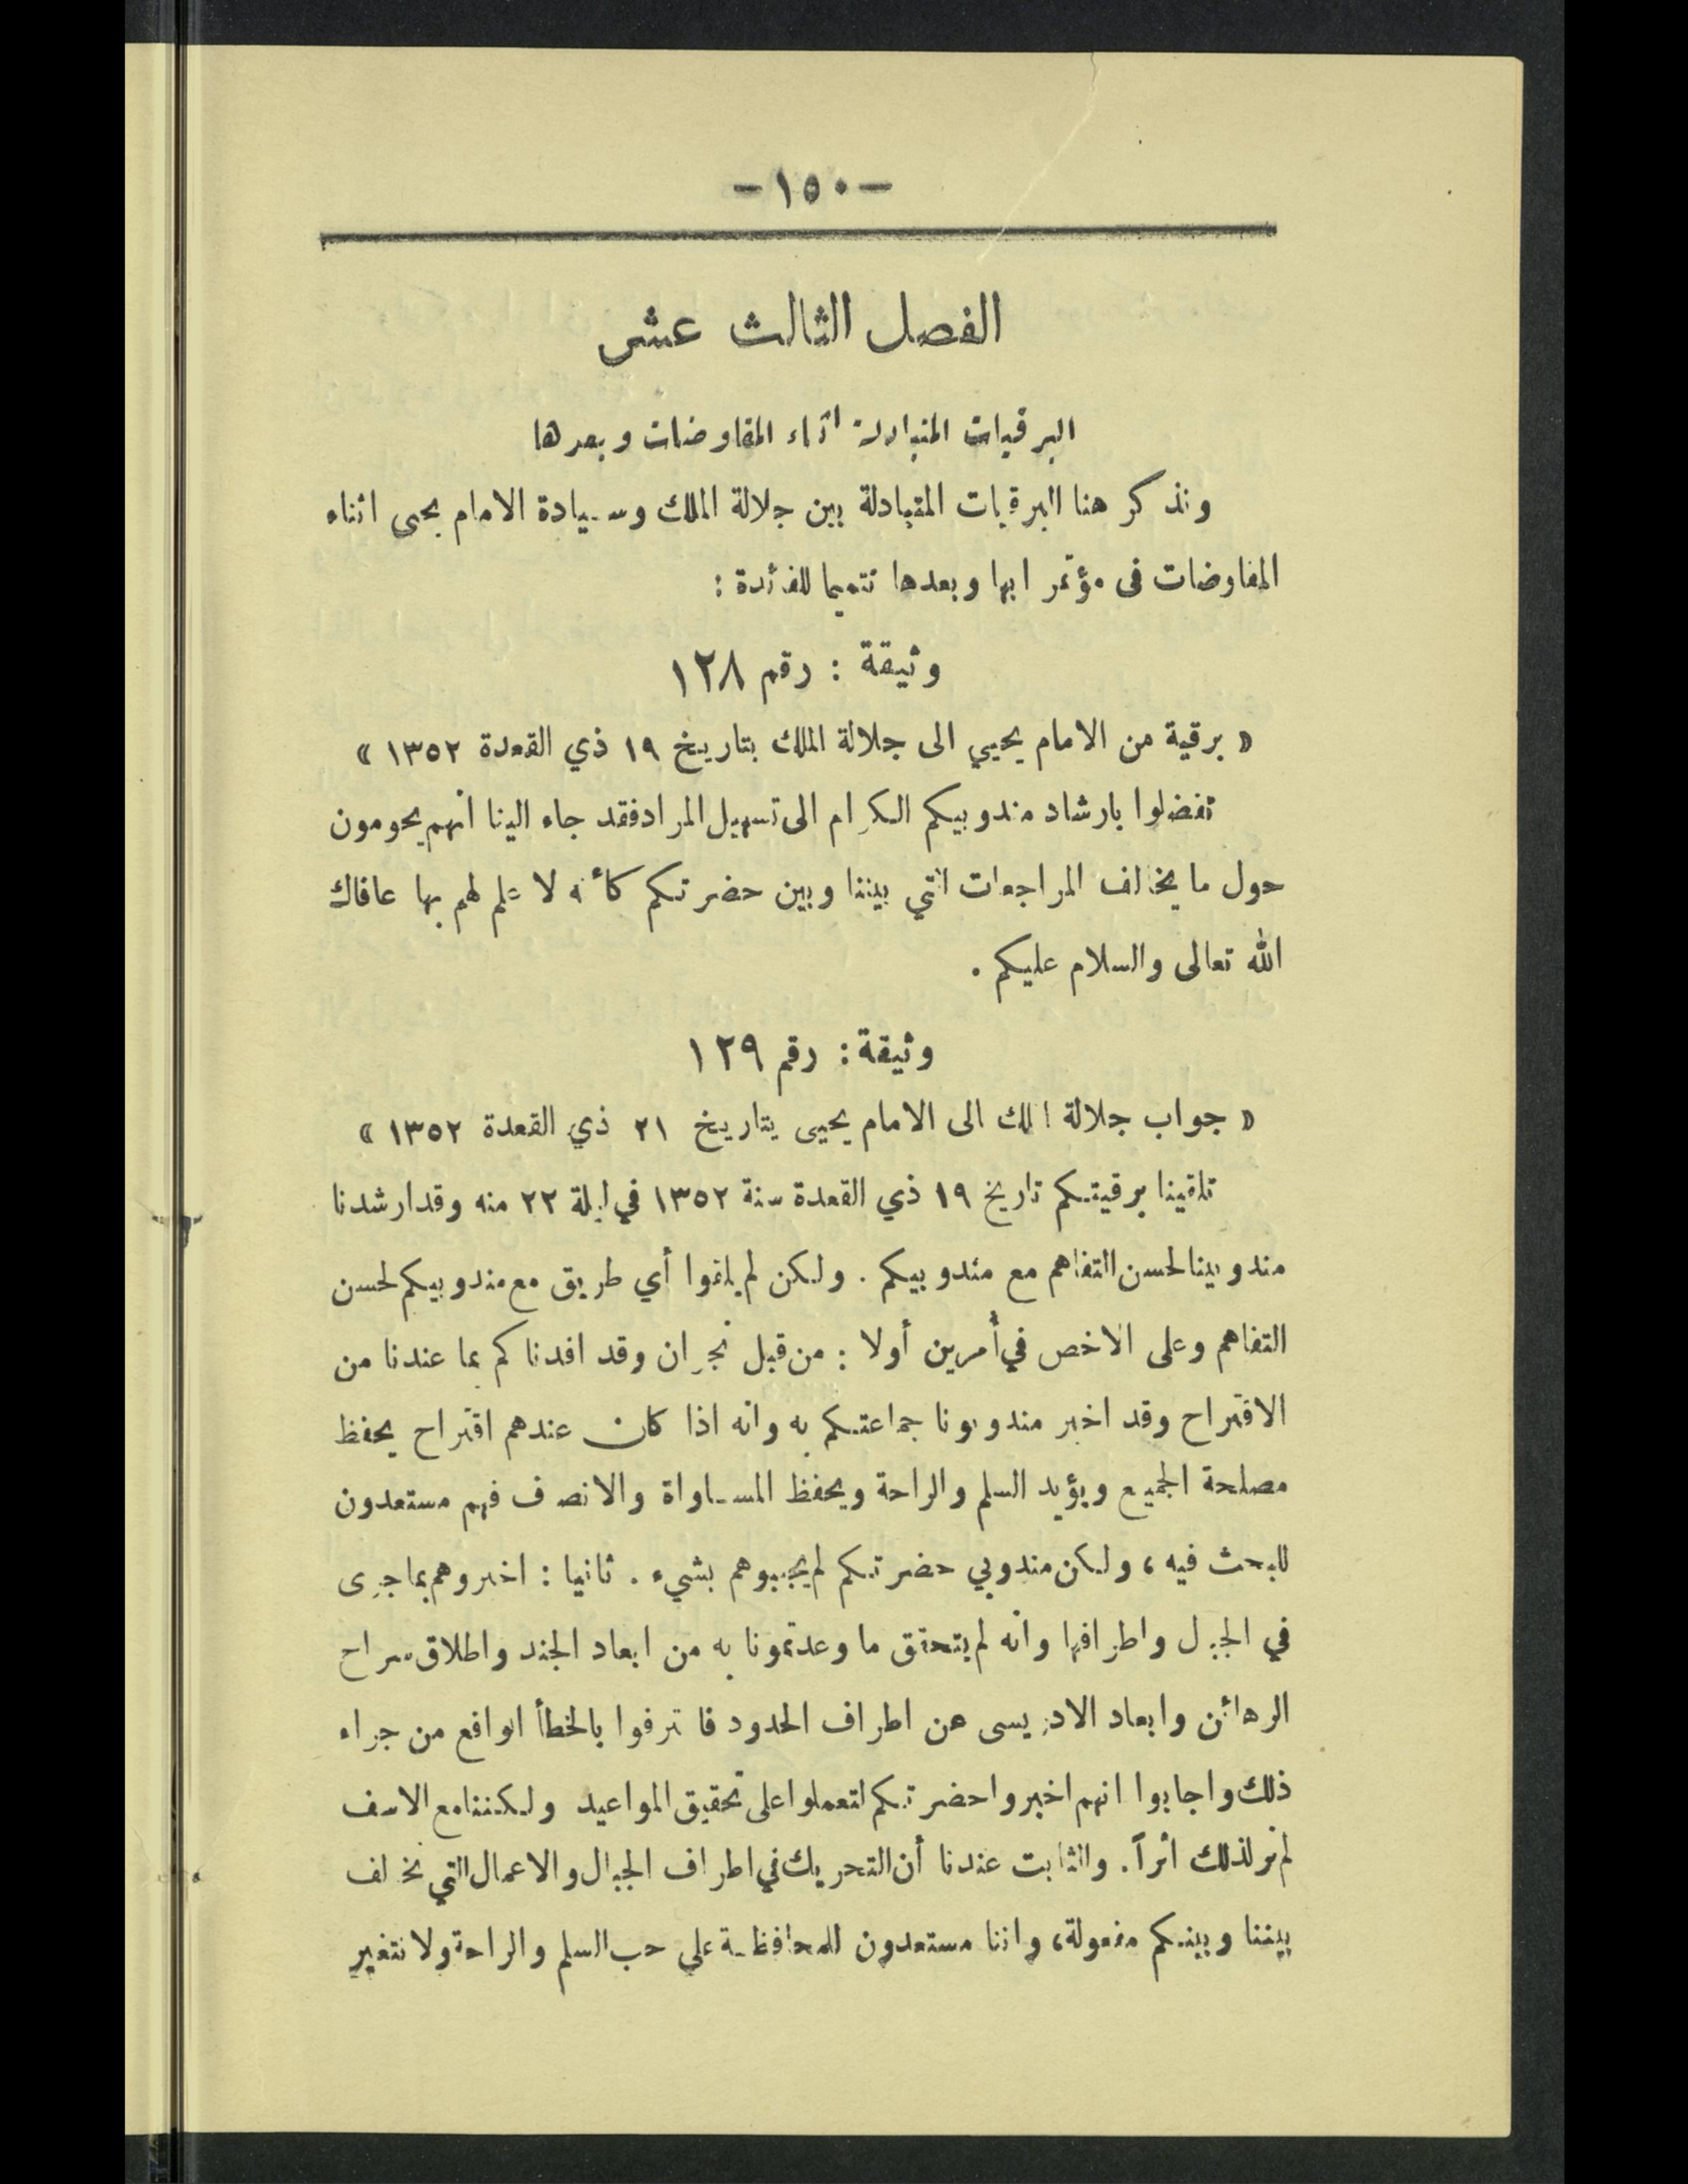 -١٥٠-
الفصل الثالث عشر
البرقيات المتبادلة اثناء المفاوضات وبعدها
ونذكر هنا البرقيات المتبادلة بين جلالة الملك وسيادة الامام يحيى اثناء
المفاوضات فى مؤتمر ابها وبعدها تتميما للفائدة :
وثيقة : رقم ١٢٨
« برقية من الامام يحيي الى جلالة الملك بتاريخ ١٩ ذي القعدة ١٣٥٢ »
تفضلوا بارشاد مندوبيكم الكرام الى تسهيل المراد فقد جاء الينا انهم يحومون
حول ما يخالف المراجعات التي بيننا وبين حضرتكم كأنه لا علم لهم بها عافاك
الله تعالى والسلام عليكم .
وثيقة : رقم ١٢٩
« جواب جلالة الملك الى الامام يحيى بتاريخ ٢١ ذي القعدة ١٣٥٢ »
تلقينا برقيتكم تاريخ ١٩ ذي القعدة سنة ١٣٥٢ في ليلة ٢٢ منه وقد ارشدنا
مندوبينا لحسن التفاهم مع مندوبيكم . ولكن لم يلقوا أي طريق مع مندوبيكم لحسن
التفاهم وعلى الاخص في أمرين أولا : من قبل نجران وقد افدناكم بما عندنا من
الاقتراح وقد اخبر مندوبونا جماعتكم به وانه اذا كان عندهم اقتراح يحفظ
مصلحة الجميع ويؤيد السلم والراحة ويحفظ المساواة والانصاف فهم مستعدون
للبحث فيه ، ولكن مندوبي حضرتكم لم يجيبوهم بشيء . ثانيا : اخبروهم بما جرى
في الجبال واطرافها وانه لم يتحقق ما وعدتمونا به من ابعاد الجند واطلاق سراح
الرهائن وابعاد الادريسى عن اطراف الحدود فاعترفوا بالخطأ الواقع من جراء
ذلك واجابوا انهم اخبروا حضرتكم لتعملوا على تحقيق المواعيد ولكننا مع الاسف
لم نر لذلك أثراً . والثابت عندنا أن التحريك في اطراف الجبال والاعمال التي تخالف
بيننا وبينكم مفعولة، واننا مستعدون للمحافظة على حب السلم والراحة ولا نتغير